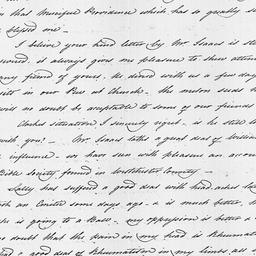 that Munificent Providence which has so greatly
blessed me —
I believe your kind letter by Mr. Isaacs is still
it always gives me pleasure to show atten
any friend of yours. He dined with us a few day
in our Pew at Church — The melon seeds
will no doubt be acceptable to some of our friends
situation I sincerely regret — is he still
with you? — Mr. Isaacs talks a great deal of William
influence — we have seen with pleasure an accoun
Bible Society formed in Westchester County —
Sally has suffered a good deal with head aches
with an some days ago — & is much better,
is going to a Ball — my oppression is better &
no doubt that the pain in my head is Rheumati
had a good deal of Rheumatism in my limbs, all